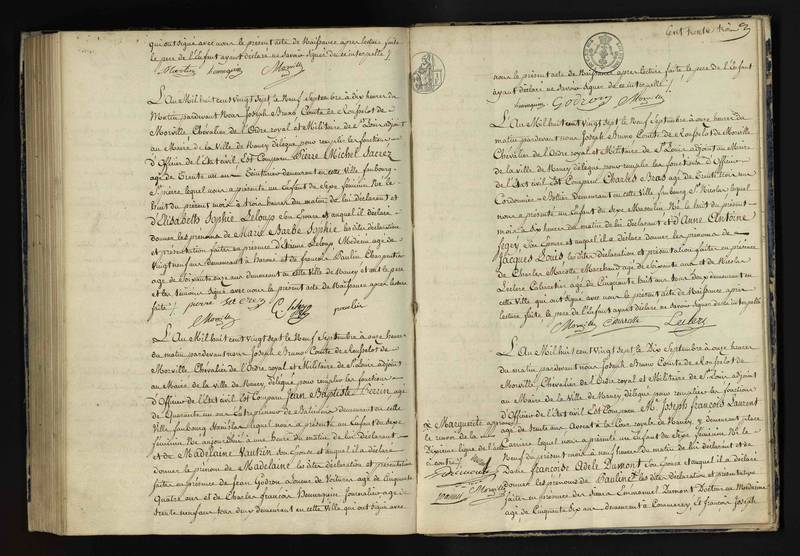 qui ont signé avec nous le présent acte de Naissance après lecture faite
le père de l'Enfant ayant déclaré ne savoir signer de ce interpellé
Morville
L'An Mil huit cent Vingt sept le Neuf Septembre à dix heures du
Matin pardevant Nous Joseph Bruno Comte de Rousselot de
Morville, Chevalier de l'Ordre royal et Militaire de St Louis adjoint
au Maire de la Ville de Nancy délégué pour remplir les fonctions
d'Officier de l'Etat civil Est Comparu Pierre Michel Sacrez
agé de Trente un ans demeurant en cette Ville faubourg
St pierre lequel nous a présenté un Enfant de Sexe féminin Né le
huit du présent mois à trois heures du matin de lui déclarant et
d'Elisabeth Sophie Leloup son Epouse et auquel il a déclaré
donner les prénoms de Marie Barbe Sophie les dites déclaration
et présentation faites en présence d'Etienne Leloup agé de
Vingt neuf ans demeurant à et de françois Paulin Charpentier
agé de Soixante onze ans demeurant en cette Ville de Nancy et ont le père
et les témoins signé avec nous le présent acte de Naissance après lecture
faite
Morville paulin
L'An Mil huit cent Vingt sept le Neuf Septembre à onze heures
du matin pardevant nous Joseph Bruno Comte de Rousselot de
Morville Chevalier de l'Ordre royal et Militaire de St Louis adjoint
au Maire de la Ville de Nancy délégué pour remplir les fonctions
d'Officier de l'Etat civil Est Comparu Jean Baptiste agé
de Quarante un ans Entrepreneur de Batimens demeurant en cette
Ville faubourg Stanislas lequel nous a présenté un Enfant du Sexe
féminin Né aujourdhui à une heure du matin de lui déclarant
et de Madelaine Vautrin son Epouse et auquel il a déclaré
donner le prénom de Madelaine les dites déclaration et présentation
faites en présence de Jean Godron Loueur de Voitures agé de Cinquante
Quatre ans et de Charles françois Journalier agé de
trente neuf ans tous deux demeurant en cette Ville qui ont signé avec
Cent trente trois
nous le présent acte de Naissance après lecture faite le père de l'Enfant
ayant déclaré ne savoir signer de ce interpellé
Godron Morville
L'An Mil huit cent Vingt sept le Neuf Septembre à onze heures du
matin pardevant nous Joseph Bruno Comte de Rousselot de Morville
Chevalier de l'Ordre royal et Militaire de St Louis adjoint au Maire
de la ville de Nancy délégué pour remplir les fonctions d'Officier
de l'Etat civil Est Comparu Charles agé de ans
Cordonnier Bottier demeurant en cette Ville faubourg St Nicolas lequel
nous a présenté un Enfant du Sexe Masculin Né le huit du présent
mois à dix heures du matin de lui Déclarant et d'Anne Antoine
son Epouse et auquel il a déclaré donner les prénoms de
Jacques Louis les dites déclaration et présentation faites en présence
de Charles Marotte Marchand agé de Soixante ans et de Nicolas
Leclerc Cabaretier agé de Cinquante huit ans tous deux demeurant en
cette Ville qui ont signé avec nous le présent acte de Naissance après
lecture faite, le père de l'Enfant ayant déclaré ne savoir signer de ce interpellé
Morville Leclerc
L'An Mil huit cent Vingt sept le Dix Septembre à onze heures
du matin pardevant nous Joseph Bruno Comte de Rousselot de
Morville Chevalier de l'Ordre royal et Militaire de St Louis adjoint
au Maire de la Ville de Nancy délégué pour remplir les fonctions
d'Officier de l'Etat civil Est Comparu Mr Joseph françois Laurent
agé de trente ans Avocat à la Cour royale de Nancy y demeurant place
Carrière lequel nous a présenté un Enfant de Sexe féminin Né le
Neuf du présent mois à neuf heures du matin de lui déclarant et de
Dame françoise Adèle Lamont son Epouse et auquel il a déclaré
donner les prénoms de Pauline les dites déclaration et présentation
faites en présence des Sieurs Emmanuel Lamont Docteur en Médecine
agé de Cinquante Six ans demeurant à Commercy, et françois Joseph
Marguerite approuvé
le renvoi de la
ligne de l'acte
ci contre
Morville